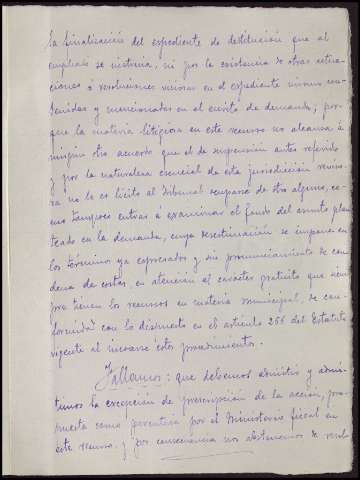 la finalización del expediente de destitución que al
empleado se instruía, ni por la existencia de otras actua-
ciones o resoluciones visibles en el expediente mismo con-
tenidas y mencionadas en el escrito de demanda; por-
que la materia litigiosa en este recurso no alcanza á
ningún otro acuerdo que el de suspensión antes referido
y por la naturaleza esencial de esta jurisdicción reviso-
ra no le es lícito al Tribunal ocuparse de otro alguno, co-
mo tampoco entrar á examinar el fondo del asunto plan-
teado en la demanda, cuya desestimación se impone en
los términos ya expresados y sin pronunciamiento de con-
dena de costas, en atención al carácter gratuito que siem-
pre tienen los recursos en materia municipal, de con-
formidad con lo dispuesto en el artículo 256 del Estatuto
vigente al incoarse estos procedimientos.
Fallamos: que debemos admitir y admi-
timos la excepción de prescripción de la acción, pro-
puesta como perentoria por el Ministerio fiscal en
este recurso, y por consecuencia nos abstenemos de resol-